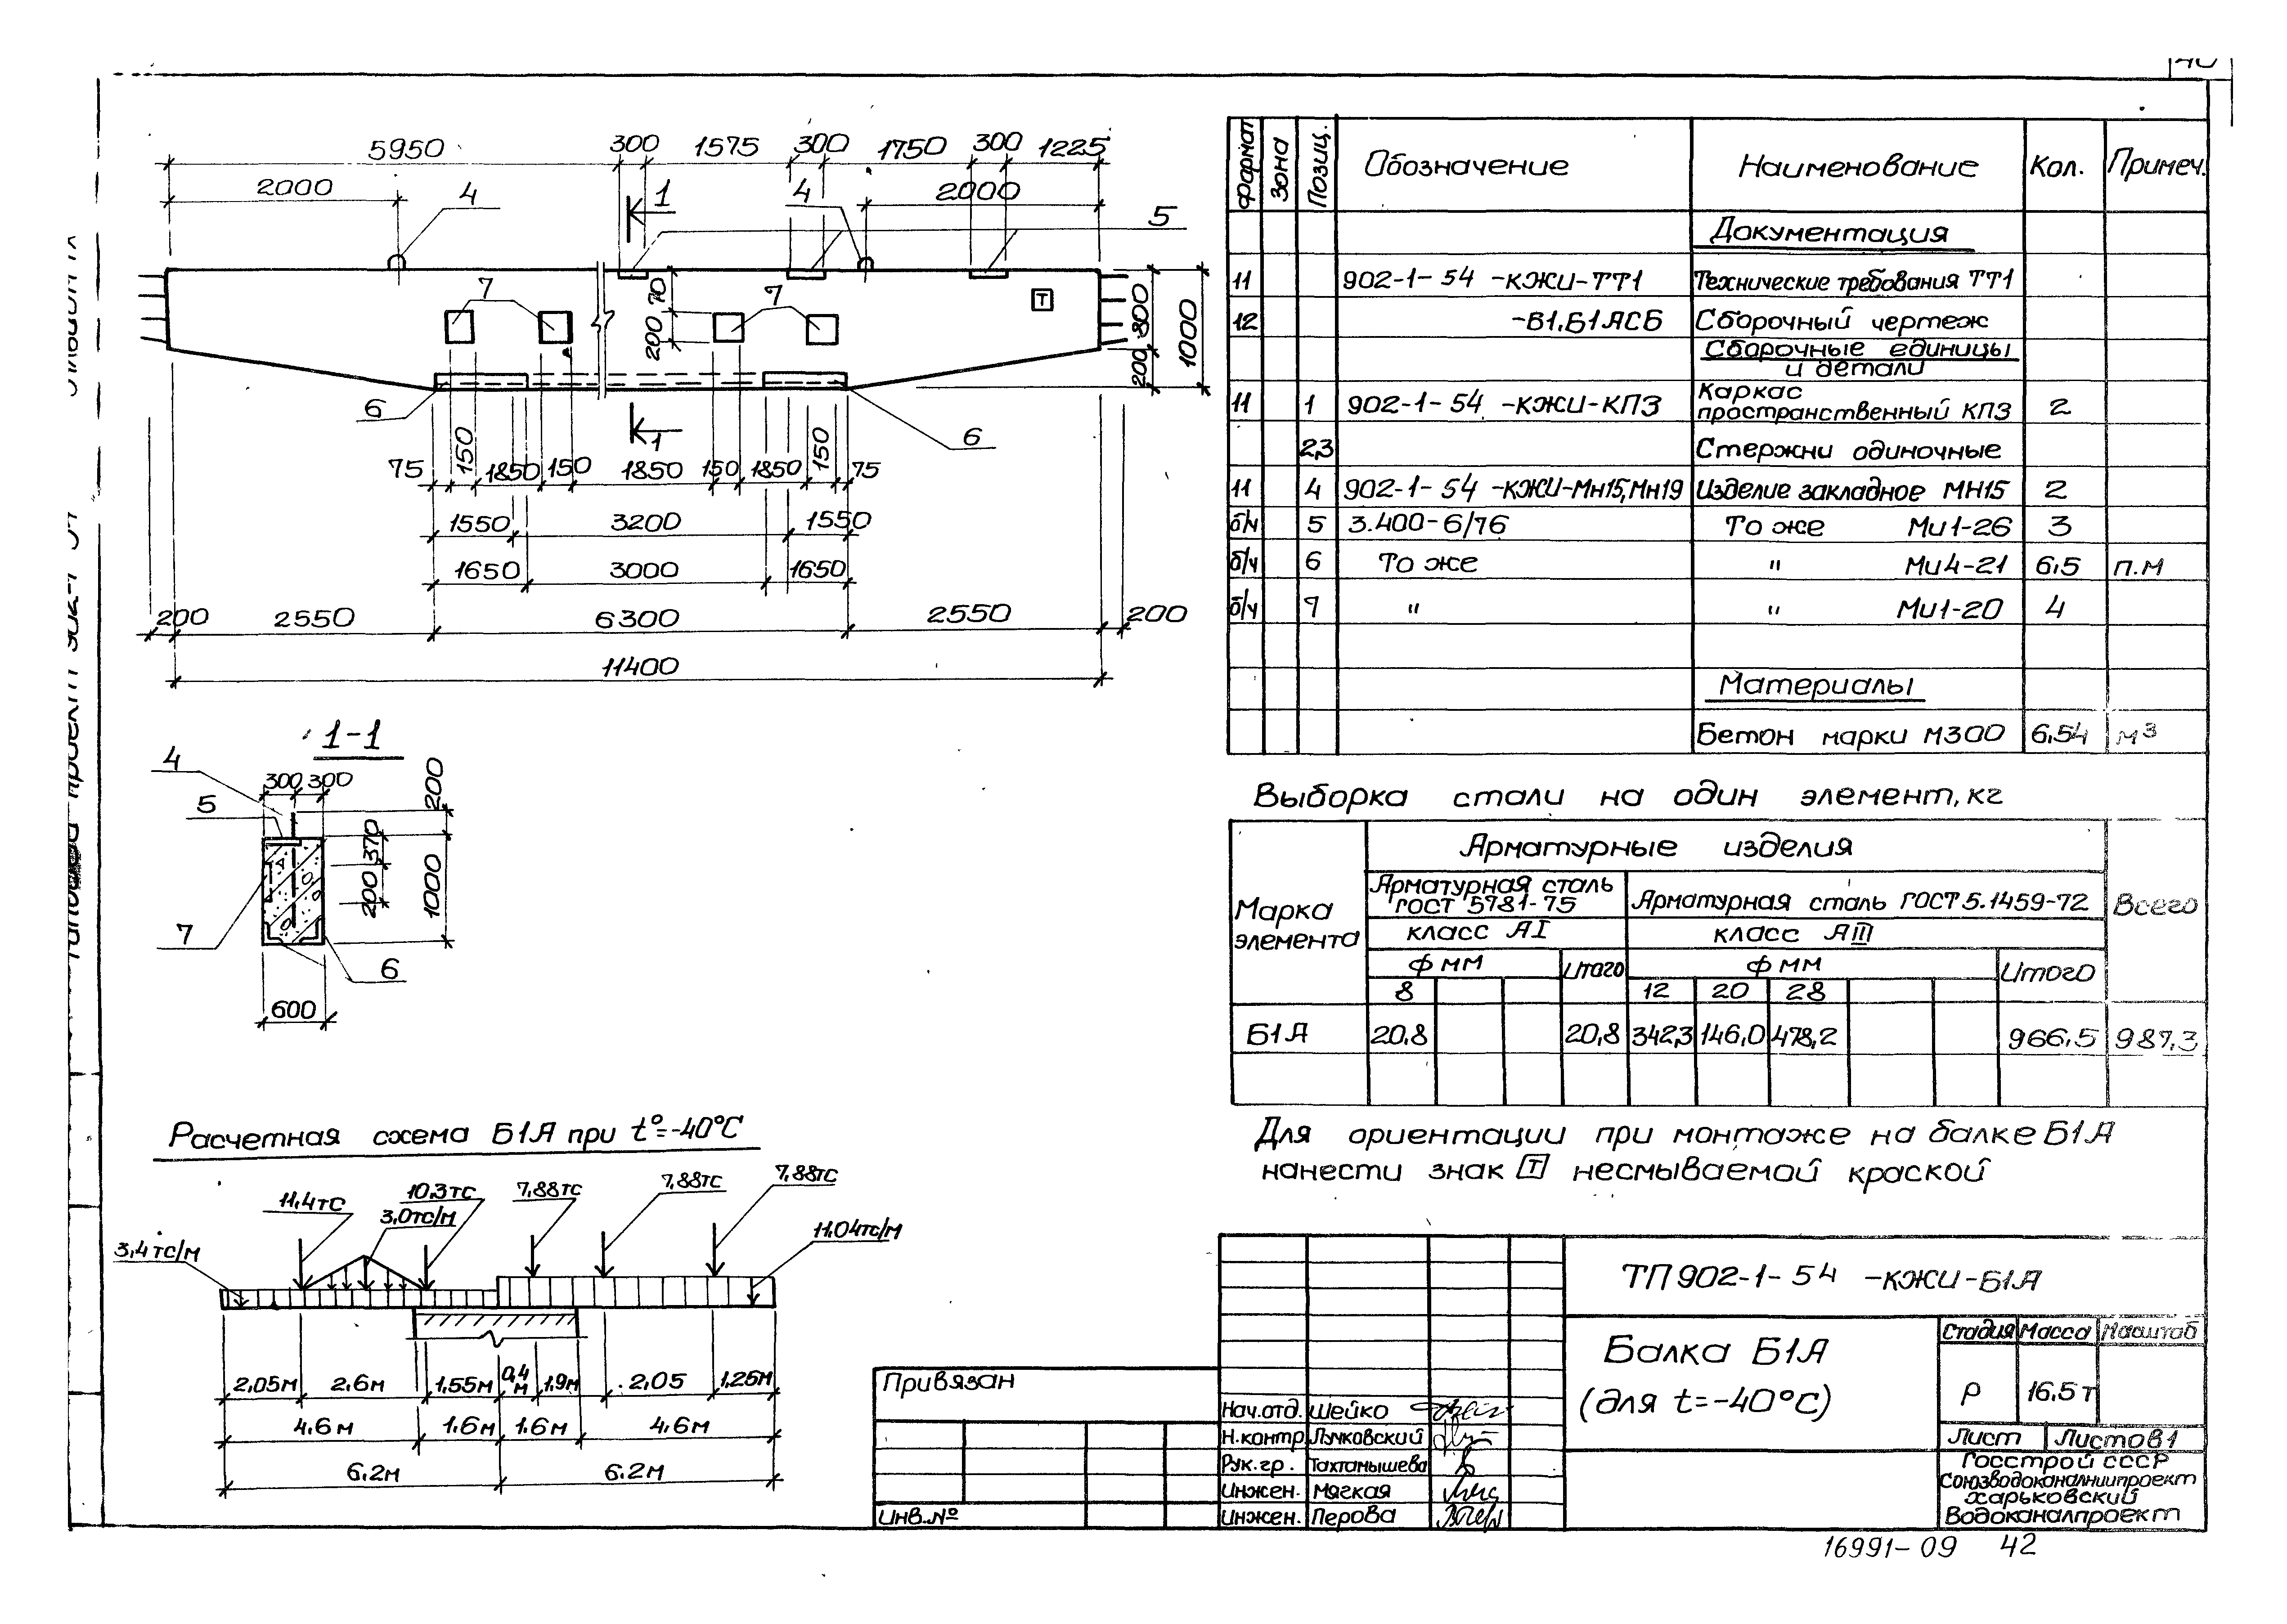 5950 300 1575 300 1750 300 1225
2000 4 1 4 2000 5
7 7 70 200 T 800 200 1000
6 1 6
75 150 1850 150 1850 150 1850 150 75
1550 3200 1550
1650 3000 1650
200 2550 6300 2550 200
11400
1-1
4 300 300 200
5 370
200 1000
7
6
600
Расчетная схема Б1А при t°=-40°С
11,4тс 10.3тс 7,88тс 7,88тс 7,88тс
3,4тс/м 3,0тс/м 11,04тс/м
2,05м 2,6м 1,55м 0,4м 1,9м 2,05 1,25м
4,6м 1.6м 1.6м 4,6м
6.2м 6.2м
Формат Зона Позиц. Обозначение Наименование Кол. Примеч.
Документация
11 902-1-54 -КЖИ-ТТ1 Технические требования ТТ1
12 -В1.Б1АСБ Сборочный чертеж
Сборочные единицы
и детали
11 1 902-1-54 -КЖИ-КП3 Каркас
пространственный КП3 2
2,3 Стержни одиночные
11 4 902-1-54 -КЖИ-Мн15,Мн19 Изделие закладное МН15 2
б/ч 5 3.400-6/76 То же Ми1-26 3
б/ч 6 То же " Ми4-21 6,5 п.м
б/ч 7 " " Ми1-20 4
Материалы
Бетон марки М300 6,54 м³
Выборка стали на один элемент, кг
Марка
элемента
Арматурные изделия
Всего
Арматурная сталь
ГОСТ 5781-75
Арматурная сталь ГОСТ 5.1459-72
класс АI класс АIII
Ф мм Итого Ф мм Итого
8 12 20 28
Б1А 20,8 20,8 342,3 146,0 478,2 966,5 987,3
Для ориентации при монтаже на балке Б1А
нанести знак T несмываемой краской
ТП902-1-54 -КЖИ-Б1А
Балка Б1А
(для t=-40°С)
Стадия Масса Масштаб
Р 16,5т
Лист Листов1
Госстрой СССР
Союзводоканалниипроект
Харьковский
Водоканалпроект
Привязан
Инв.№
Нач.отд. Шейко
Н.контр. Лучковский
Рук.гр. Тахтамышева
Инжен. Мягкая
Инжен. Перова
16991-09 42